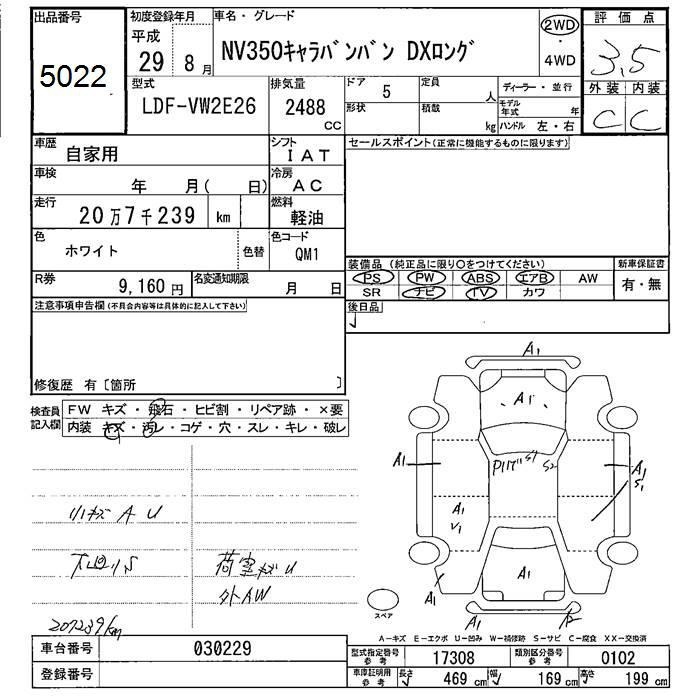 出品番号
5022
初度登録年月
平成
29 8 月
車名・グレード
NV350キャラバンバン DXロング
2WD
・
4WD
評価点
3.5
外装 内装
C C
型式
LDF-VW2E26
排気量
2488
CC
ドア 5
形状
定員
人
積載
kg
ディーラー・並行
モデル年式 年
ハンドル 左・右
車歴
自家用
シフト
IAT
車検
年 月( 日)
冷房
AC
走行
20万7千239 km
燃料
軽油
色
ホワイト
色替
色コード
QM1
R券
9,160 円
名変通知期限
月 日
セールスポイント(正常に機能するものに限ります)
装備品(純正品に限り○をつけてください)
PS PW ABS エアB AW
SR ナビ TV カワ
新車保証書
有・無
後日品
注意事項申告欄(不具合内容等は具体的に記入して下さい)
修復歴 有〔箇所 〕
検査員
記入欄
FW キズ・飛石・ヒビ割・リペア跡・×要
内装 キズ・汚レ・コゲ・穴・スレ・キレ・破レ
小キズ A U
下廻り S
荷室キズ U
外AW
207239km
A1
A1
S1
S2
A1
A1
S1
A1
V1
A1
A1
A1
スペア
A―キズ E―エクボ U―凹み W―補修跡 S―サビ C―腐食 XX―交換済
車台番号
030229
登録番号
型式指定番号
参考
17308
類別区分番号
参考
0102
車庫証明用
参考
長さ 469 cm
幅 169 cm
高さ 199 cm